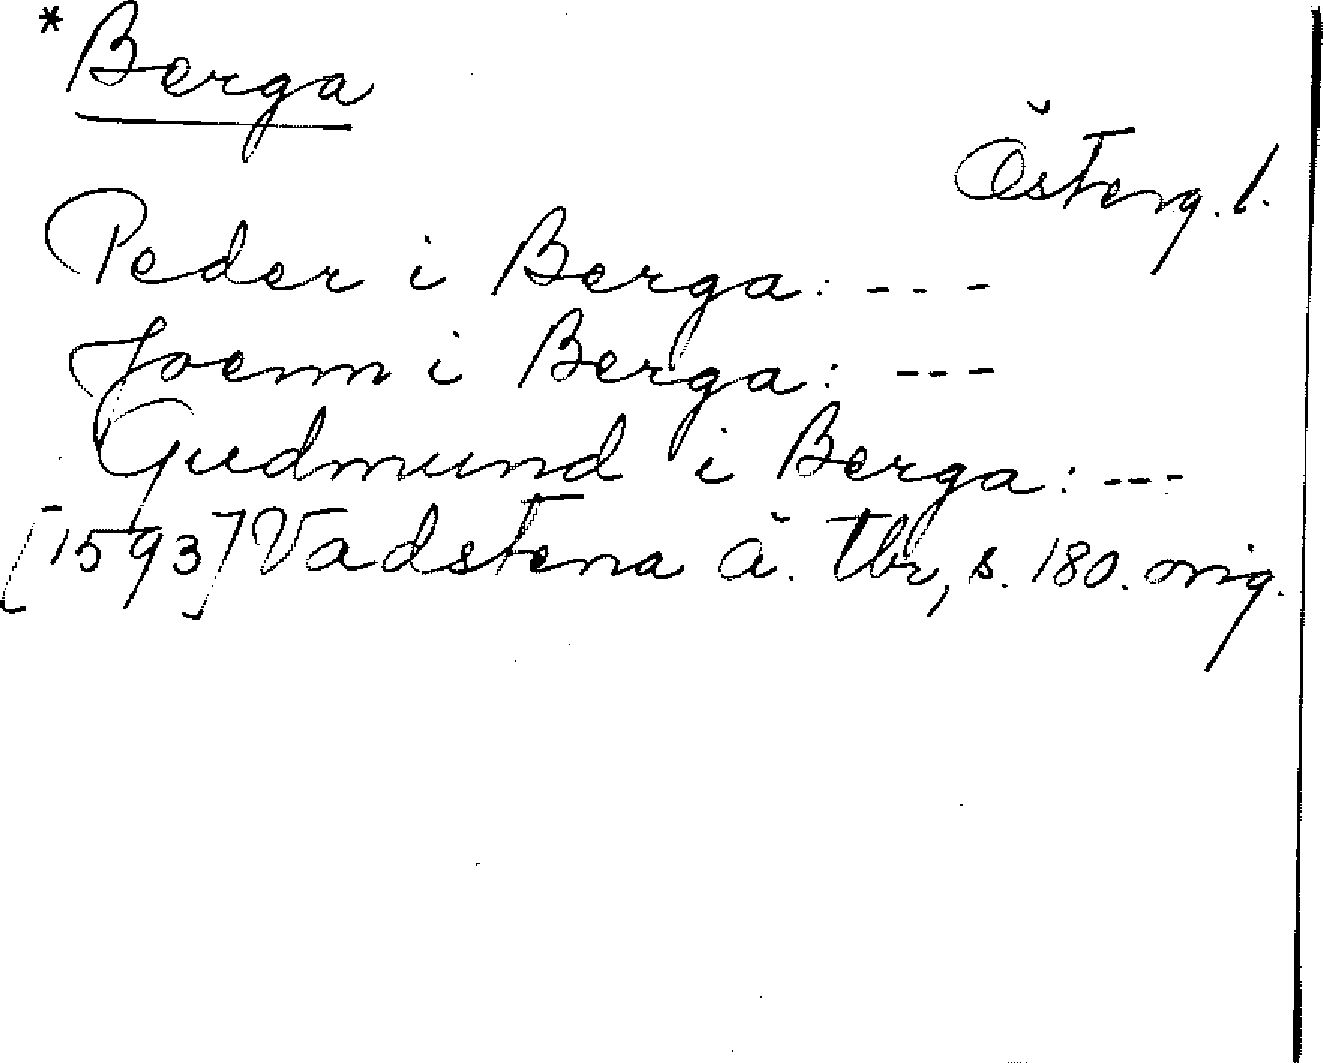 *Berga
Österg. l.
Peder i Berga: ---
Joenn i Berga: ---
Gudmund i Berga: ---
[1593] Vadstena ä. tbr, s. 180. orig.